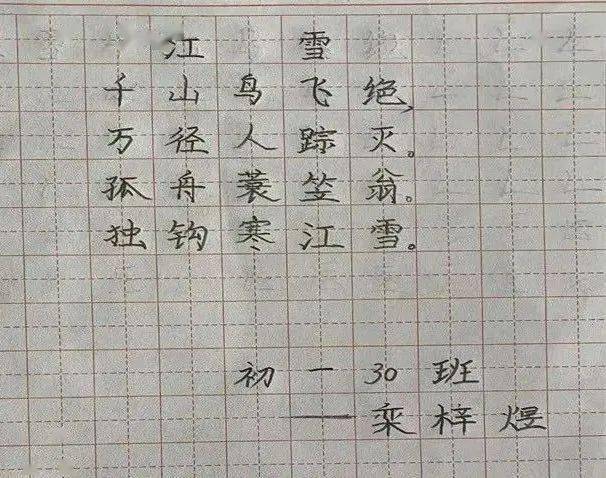 江雪
千山鸟飞绝,
万径人踪灭。
孤舟蓑笠翁。
独钩寒江雪。
初一30班
——栾梓煜